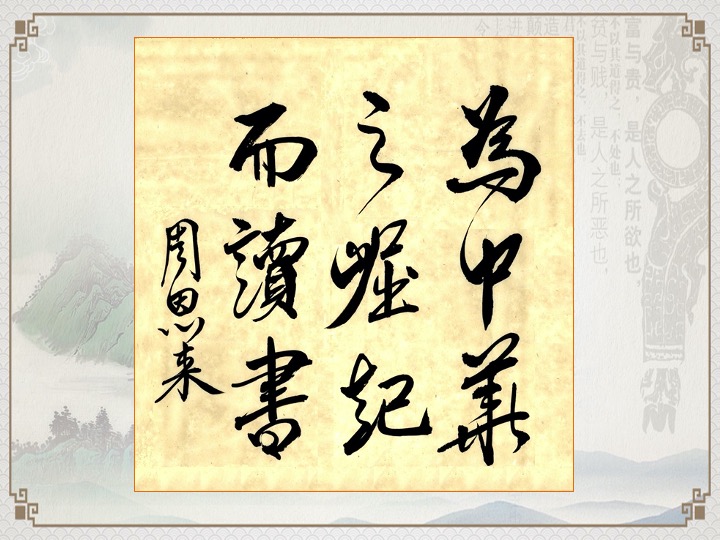 富与贵，是人之所欲也，
不以其道得之，不处也；
贫与贱，是人之所恶也，
不以其道得之，不去也
造
颠
进
今
為中華
之崛起
而讀書
周恩来